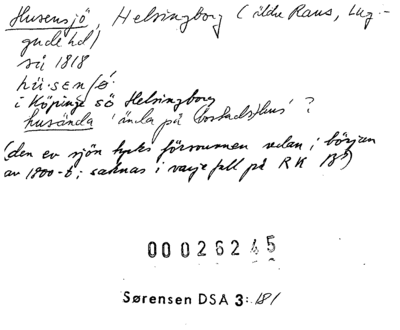 Husensjö, Helsingborg (äldre Raus, Lug-
gude hd)
så 1818
hü·sen/ó·
i Köpinge sö Helsingborg
husända 'ända på bostadshus' ?
(den ev sjön tycks försvunnen redan i början
av 1800-t; saknas i varje fall på RK
00026245
Sørensen DSA 3: 181